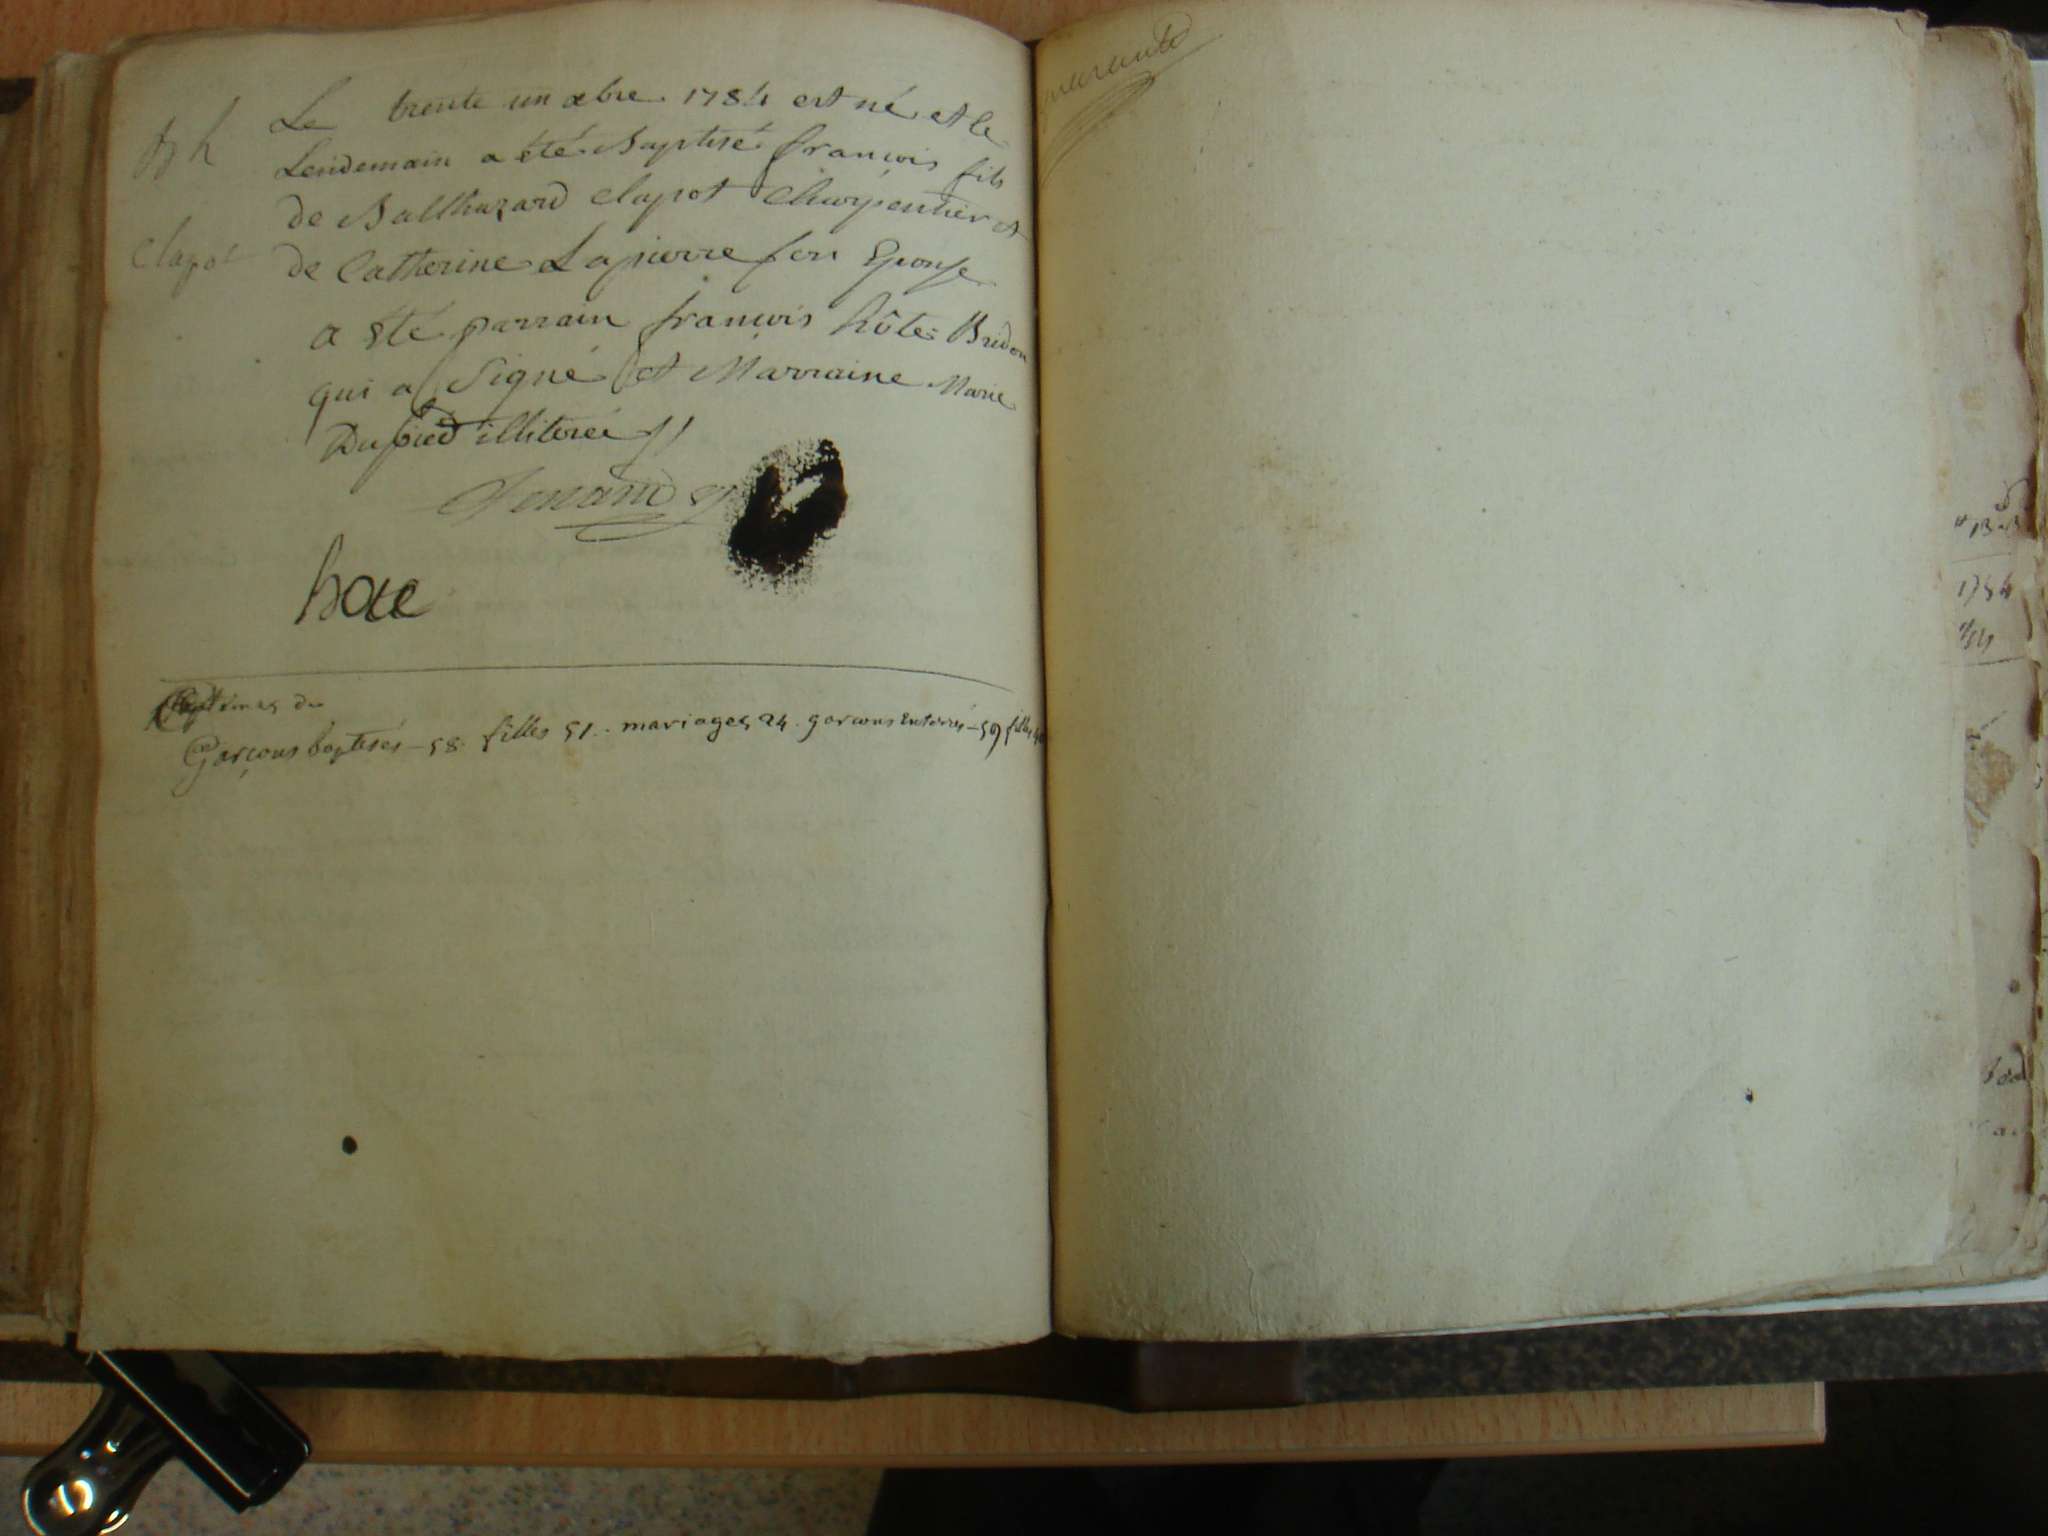 Le trente un xbre 1784 est né et le
Lendemain a été Baptisé francois fils
de Balthazard Clapot Charpentier et
Clapot
de Catherine Lapierre son Epouse
a été parrain francois hôte Bridon
qui a Signé et Marraine Marie
Dupied illiterée
hote
Garcons baptisés - 58. filles 51. mariages 24. garcons Enterrés - 59 filles
quarante
1784